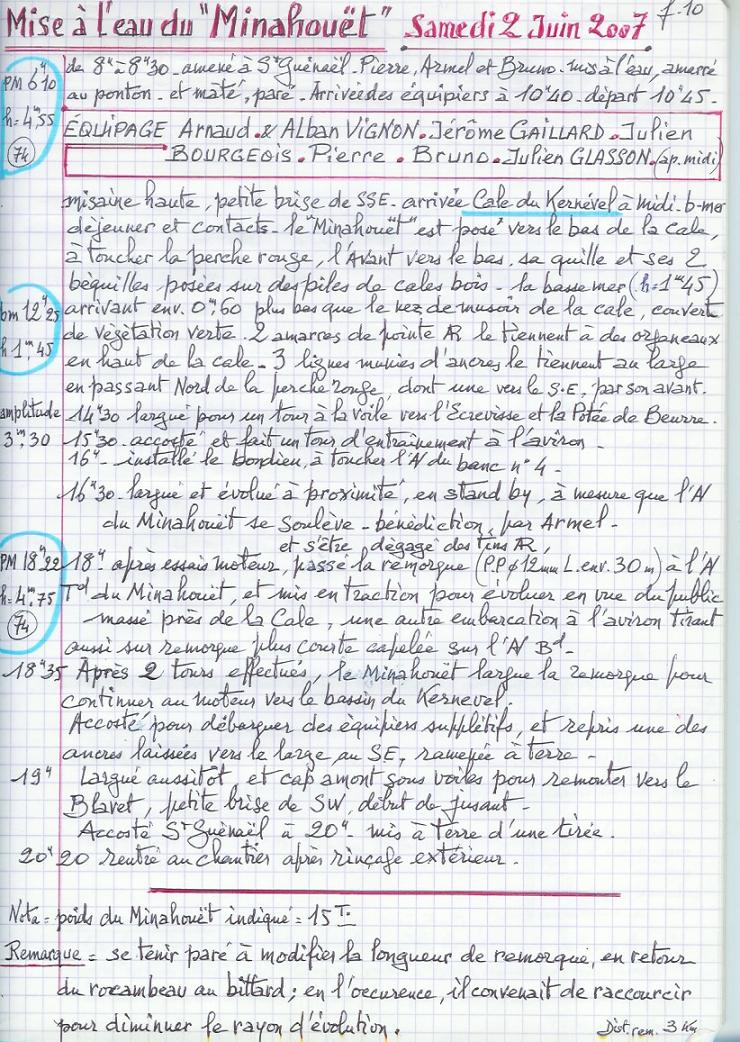 Mise à l'eau du "Minahouët" Samedi 2 Juin 2007 f.10
PM 6ʰ10
h=4ᵐ55
74
de 8ʰ à 8ʰ30 - amené à Sᵗ Guénaël. Pierre, Armel et Bruno - mis à l'eau, amarré
au ponton - et mâté, paré - Arrivée des équipiers à 10ʰ40 - départ 10ʰ45 -
ÉQUIPAGE Arnaud & Alban VIGNON. Jérôme GAILLARD. Julien
BOURGEOIS. Pierre. Bruno. Julien GLASSON. (ap. midi)
misaine haute, petite brise de SSE - arrivée Cale du Kernével à midi - b-mer
déjeuner et contacts - le "Minahouët" est posé vers le bas de la cale,
à toucher la perche rouge, l'Avant vers le bas, sa quille et ses 2
béquilles posées sur des piles de cales bois - la basse mer (h=1ᵐ45)
bm 12ʰ25
h 1ᵐ45
arrivant env. 0ᵐ60 plus bas que le nez de musoir de la cale, couverte
de végétation verte - 2 amarres de pointe AR le tiennent à des organeaux
en haut de la cale - 3 lignes munies d'ancres le tiennent au large
en passant Nord de la perche rouge, dont une vers le S.E, par son avant.
amplitude
3ᵐ,30
14ʰ30 largué pour un tour à la voile vers l'Écrevisse et la Potée de Beurre.
15ʰ30 - accosté et fait un tour d'entraînement à l'aviron -
16ʰ - installé le bordieu, à toucher l'AV du banc n°4 -
16ʰ30 - largué et évolué à proximité, en stand by, à mesure que l'AV
du Minahouët se soulève - bénédiction, par Armel -
et s'être dégagé des tins AR,
PM 18ʰ22
h=4ᵐ75
74
18ʰ après essais moteur, passé la remorque (P.P ⌀ 12mm L. env. 30 m) à l'AV
Tᵈ du Minahouët, et mis en traction pour évoluer en vue du public
massé près de la Cale, une autre embarcation à l'aviron tirant
aussi sur remorque plus courte capelée sur l'AV Bᵈ -
18ʰ35 Après 2 tours effectués, le Minahouët largue la remorque pour
continuer au moteur vers le bassin du Kernevel.
Accosté pour débarquer des équipiers supplétifs, et repris une des
ancres laissées vers le large au SE, ramenée à terre -
19ʰ Largué aussitôt et cap amont sous voiles pour remonter vers le
Blavet, petite brise de SW, début de jusant -
Accosté Sᵗ Guénaël à 20ʰ - mis à terre d'une tirée.
20ʰ20 rentré au chantier après rinçage extérieur.
Nota = poids du Minahouët indiqué = 15 T.
Remarque = se tenir paré à modifier la longueur de remorque, en retour
du rocambeau au bittard ; en l'occurence, il convenait de raccourcir
pour diminuer le rayon d'évolution.
Dist. rem. 3 Km